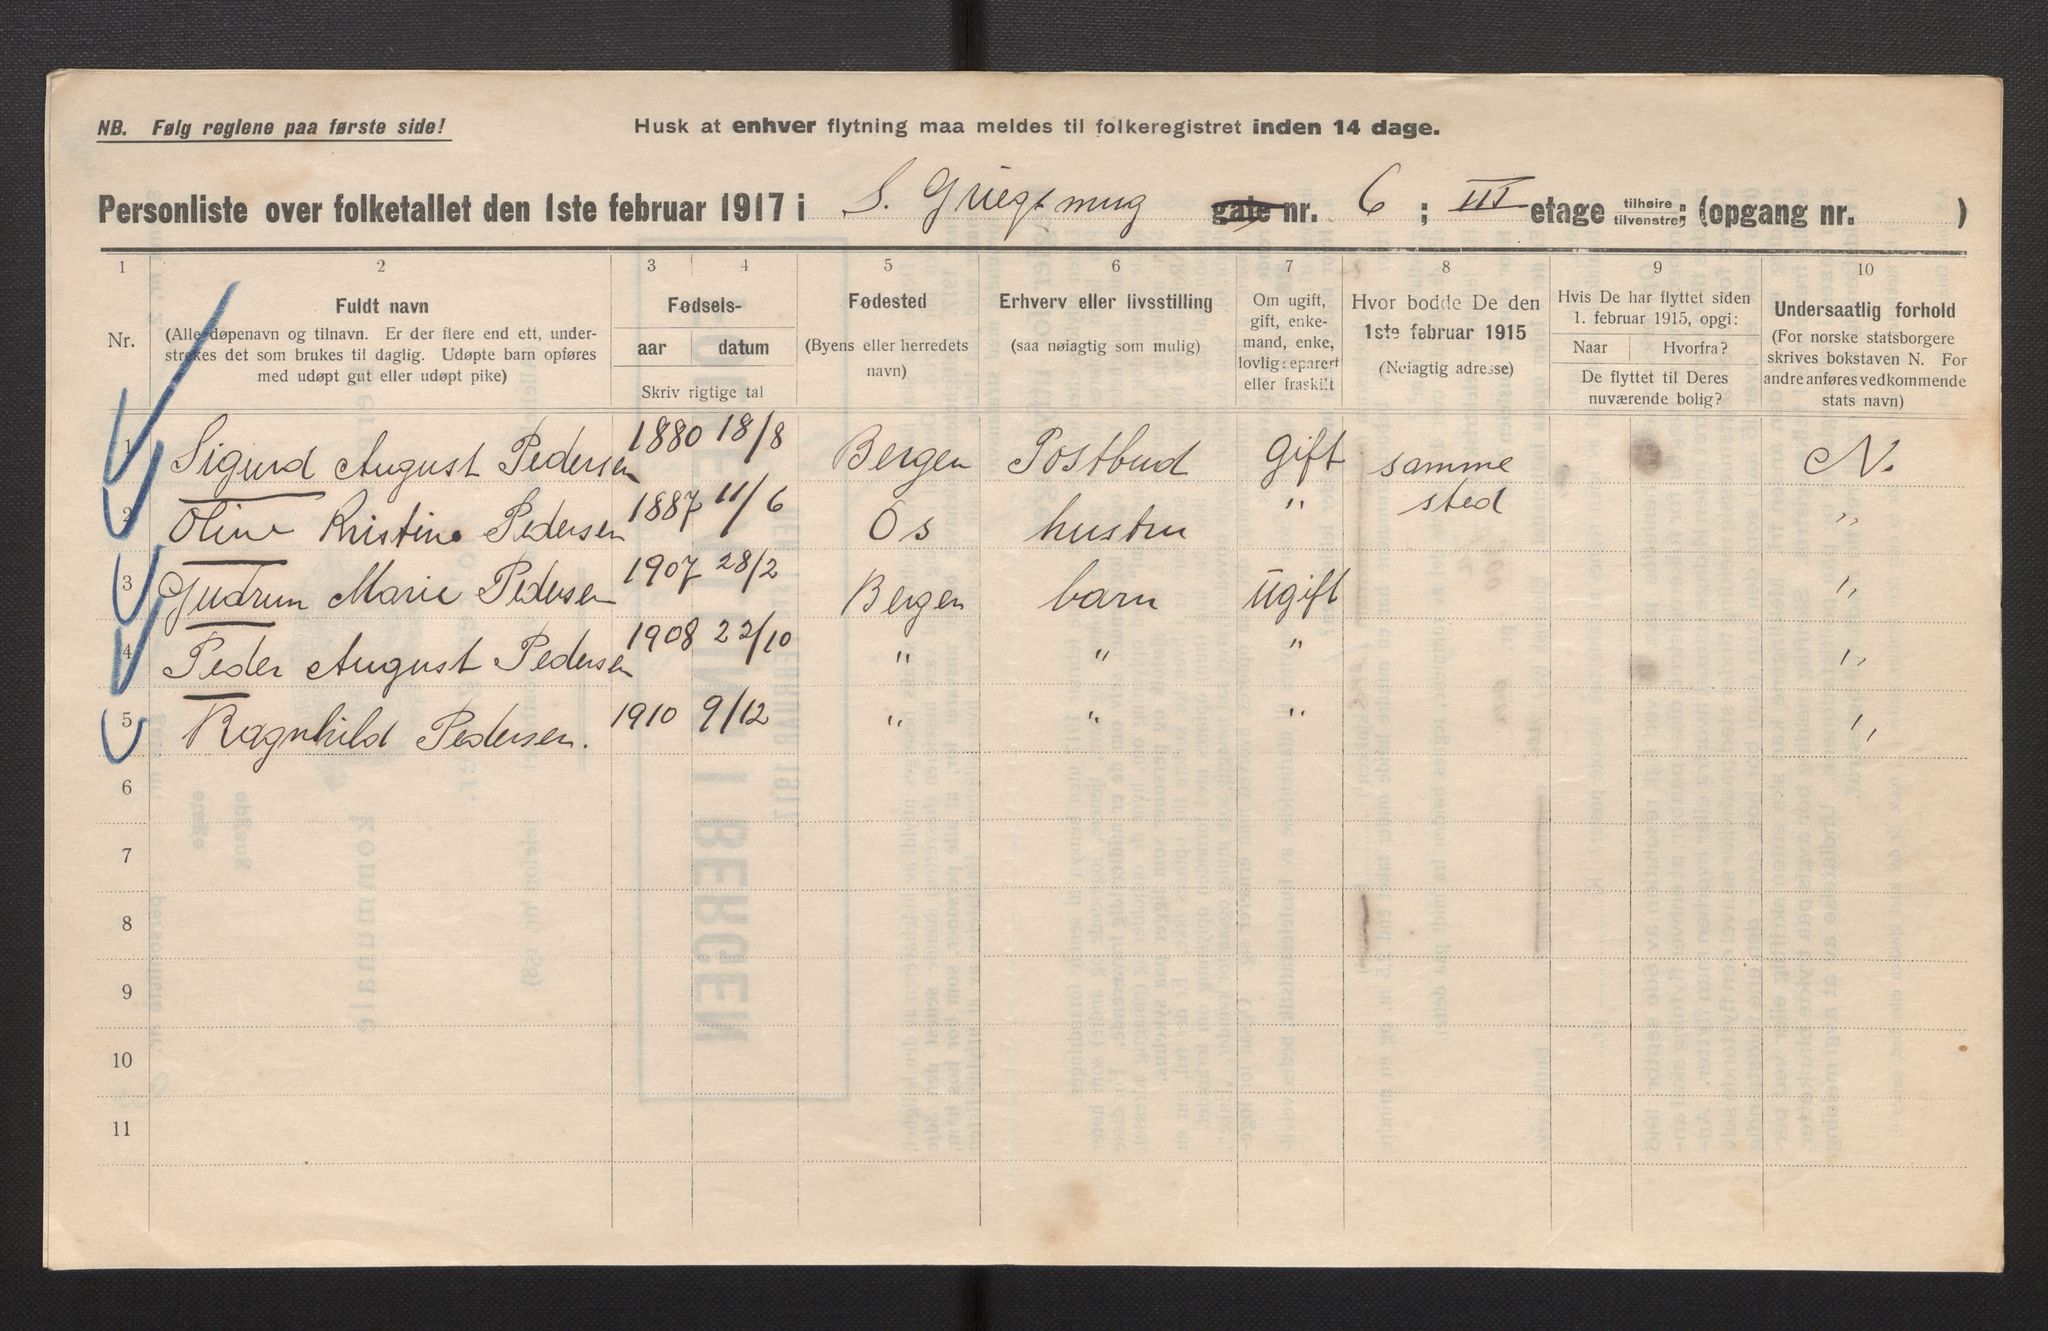 NB. Følg reglene paa første side!
Husk at enhver flytning maa meldes til folkeregistret inden 14 dage.
Personliste over folketallet den 1ste februar 1917 i S. Griegsmug gate nr. 6 ; III etage tilhøire tilvenstre; (opgang nr. )
1 2 3 4 5 6 7 8 9 10
Nr.
Fuldt navn
(Alle døpenavn og tilnavn. Er der flere end ett, under-
strekes det som brukes til daglig. Udøpte barn opføres
med udøpt gut eller udøpt pike)
Fødsels-
aar datum
Skriv rigtige tal
Fødested
(Byens eller herredets
navn)
Erhverv eller livsstilling
(saa nøiagtig som mulig)
Om ugift,
gift, enke-
mand, enke,
lovlig separert
eller fraskilt
Hvor bodde De den
1ste februar 1915
(Nøiagtig adresse)
Hvis De har flyttet siden
1. februar 1915, opgi:
Naar Hvorfra?
De flyttet til Deres
nuværende bolig?
Undersaatlig forhold
(For norske statsborgere
skrives bokstaven N. For
andre anføres vedkommende
stats navn)
1 Sigurd August Pedersen 1880 18/8 Bergen Postbud gift samme N.
2 Oline Kristine Pedersen 1887 11/6 Os hustru " sted "
3 Gudrun Marie Pedersen 1907 28/2 Bergen barn ugift "
4 Peder August Pedersen 1908 22/10 " " " "
5 Ragnhild Pedersen. 1910 9/12 " " " "
6
7
8
9
10
11